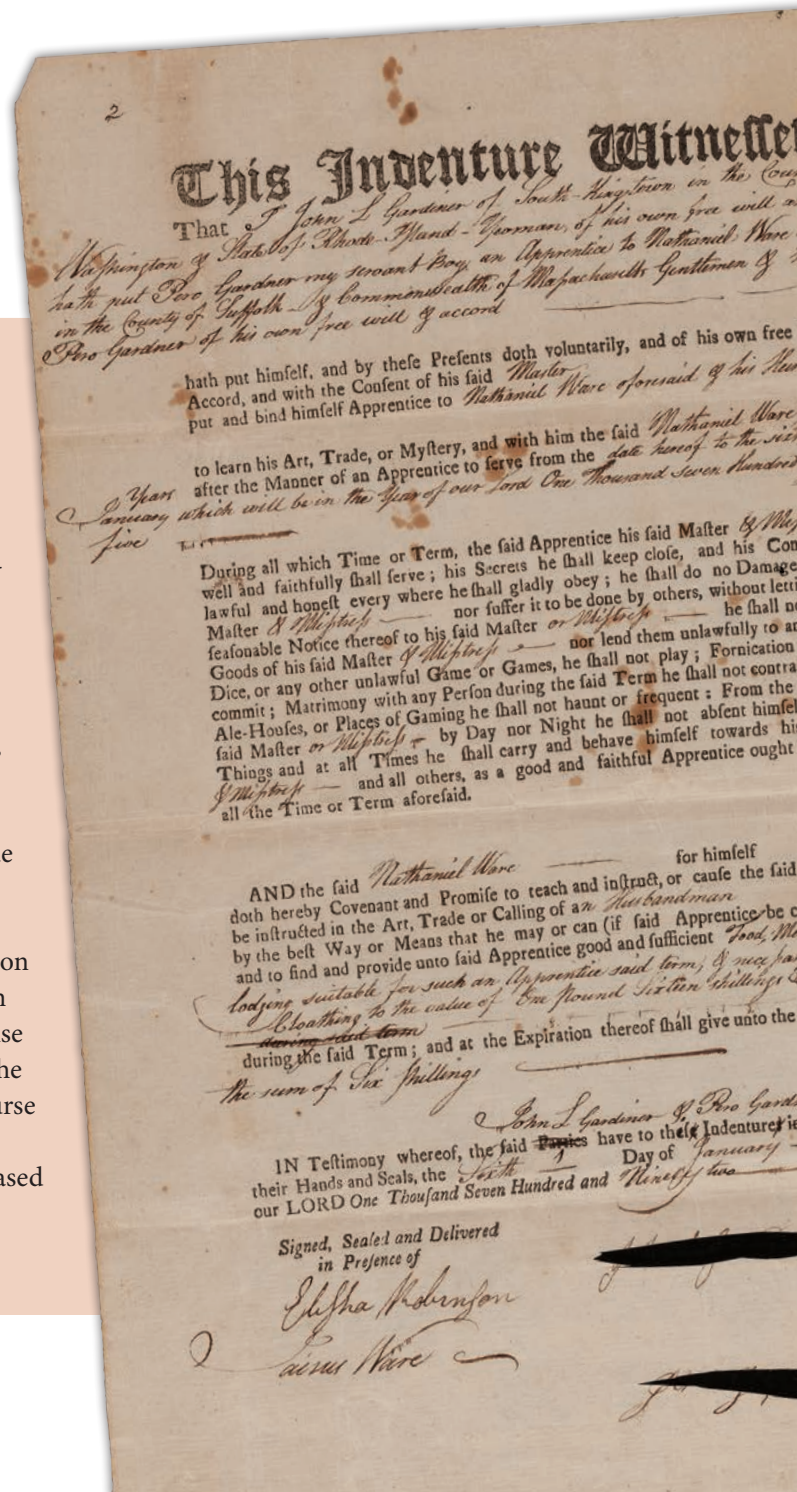 2
This Indenture Witnesse
That I John L Gardiner of South-Kingstown in the Coun
Washington & State of Rhode-Island - Yeoman, of his own free will a
hath put Pero Gardner my servant Boy, an Apprentice to Nathaniel Ware
in the County of Suffolk & Commonwealth of Massachusetts Gentlemen &
Pero Gardner of his own free will & accord
hath put himſelf, and by theſe Preſents doth voluntarily, and of his own free
Accord, and with the Conſent of his ſaid Master
put and bind himſelf Apprentice to Nathaniel Ware aforesaid & his Heir
to learn his Art, Trade, or Myſtery, and with him the ſaid Nathaniel Ware
Years after the Manner of an Apprentice to ſerve from the date hereof to the sixt
January which will be in the Year of our Lord One Thousand Seven Hundred
five
During all which Time or Term, the ſaid Apprentice his ſaid Maſter & Mis
well and faithfully ſhall ſerve; his Secrets he ſhall keep cloſe, and his Com
lawful and honeſt every where he ſhall gladly obey; he ſhall do no Damage
Maſter & Mistress nor ſuffer it to be done by others, without letti
ſeaſonable Notice thereof to his ſaid Maſter or Mistress he ſhall no
Goods of his ſaid Maſter & Mistress nor lend them unlawfully to an
Dice, or any other unlawful Game or Games, he ſhall not play; Fornication
commit; Matrimony with any Perſon during the ſaid Term he ſhall not contra
Ale-Houſes, or Places of Gaming he ſhall not haunt or frequent: From the
ſaid Maſter or Mistress by Day nor Night he ſhall not abſent himſel
Things and at all Times he ſhall carry and behave himſelf towards hi
& Mistress and all others, as a good and faithful Apprentice ought
all the Time or Term aforeſaid.
AND the ſaid Nathaniel Ware for himſelf
doth hereby Covenant and Promiſe to teach and inſtruct, or cauſe the ſaid
be inſtructed in the Art, Trade or Calling of an Husbandman
by the beſt Way or Means that he may or can (if ſaid Apprentice be c
and to find and provide unto ſaid Apprentice good and ſufficient Food,
lodging suitable for such an Apprentice said term, &
Cloathing to the value of One Pound Sixteen shillings
during said term
during the ſaid Term; and at the Expiration thereof ſhall give unto the
the sum of Six Shillings
John L Gardiner & Pero Gard
IN Teſtimony whereof, the ſaid Parties have to theſe Indentures
their Hands and Seals, the Sixth Day of January
our LORD One Thouſand Seven Hundred and Ninety two
Signed, Sealed and Delivered
in Preſence of
Elisha Robinson
Ware
e
on
n
se
he
urse
ased